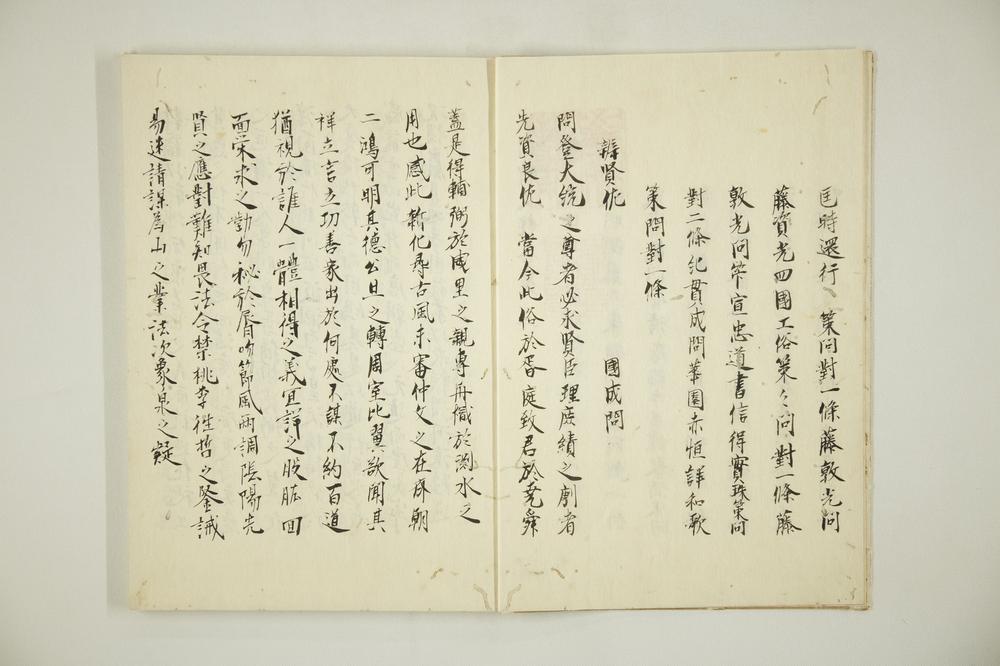 匡時還行　策問對一條藤敦光問
藤資光四國工俗策々問對一條藤
敦光問 宣忠道書信得寶珠策問
對二條紀貫成問華園赤恒詳和歌
策問對一條
辨賢佐　國成問
問登大統之尊者必求賢臣理庶績之劇者
先資良佐　當今此俗於 庭致君於堯舜
蓋是得輔弼於戚里之親專舟檝於渕水之
用也感此新化尋古風未審仲文之在 朝
二鴻可明其德公旦之轉周室比翼欲聞其
祥立言立功善家出於何處不謀不約百道
猶視於誰人一體相得之義宜詳之股肱四
面榮求之勤勿秘於脣吻節風雨調陰陽先
賢之應對難知畏法令禁桃李往哲之鑒誡
易迷請課為山之業法次象泉之疑